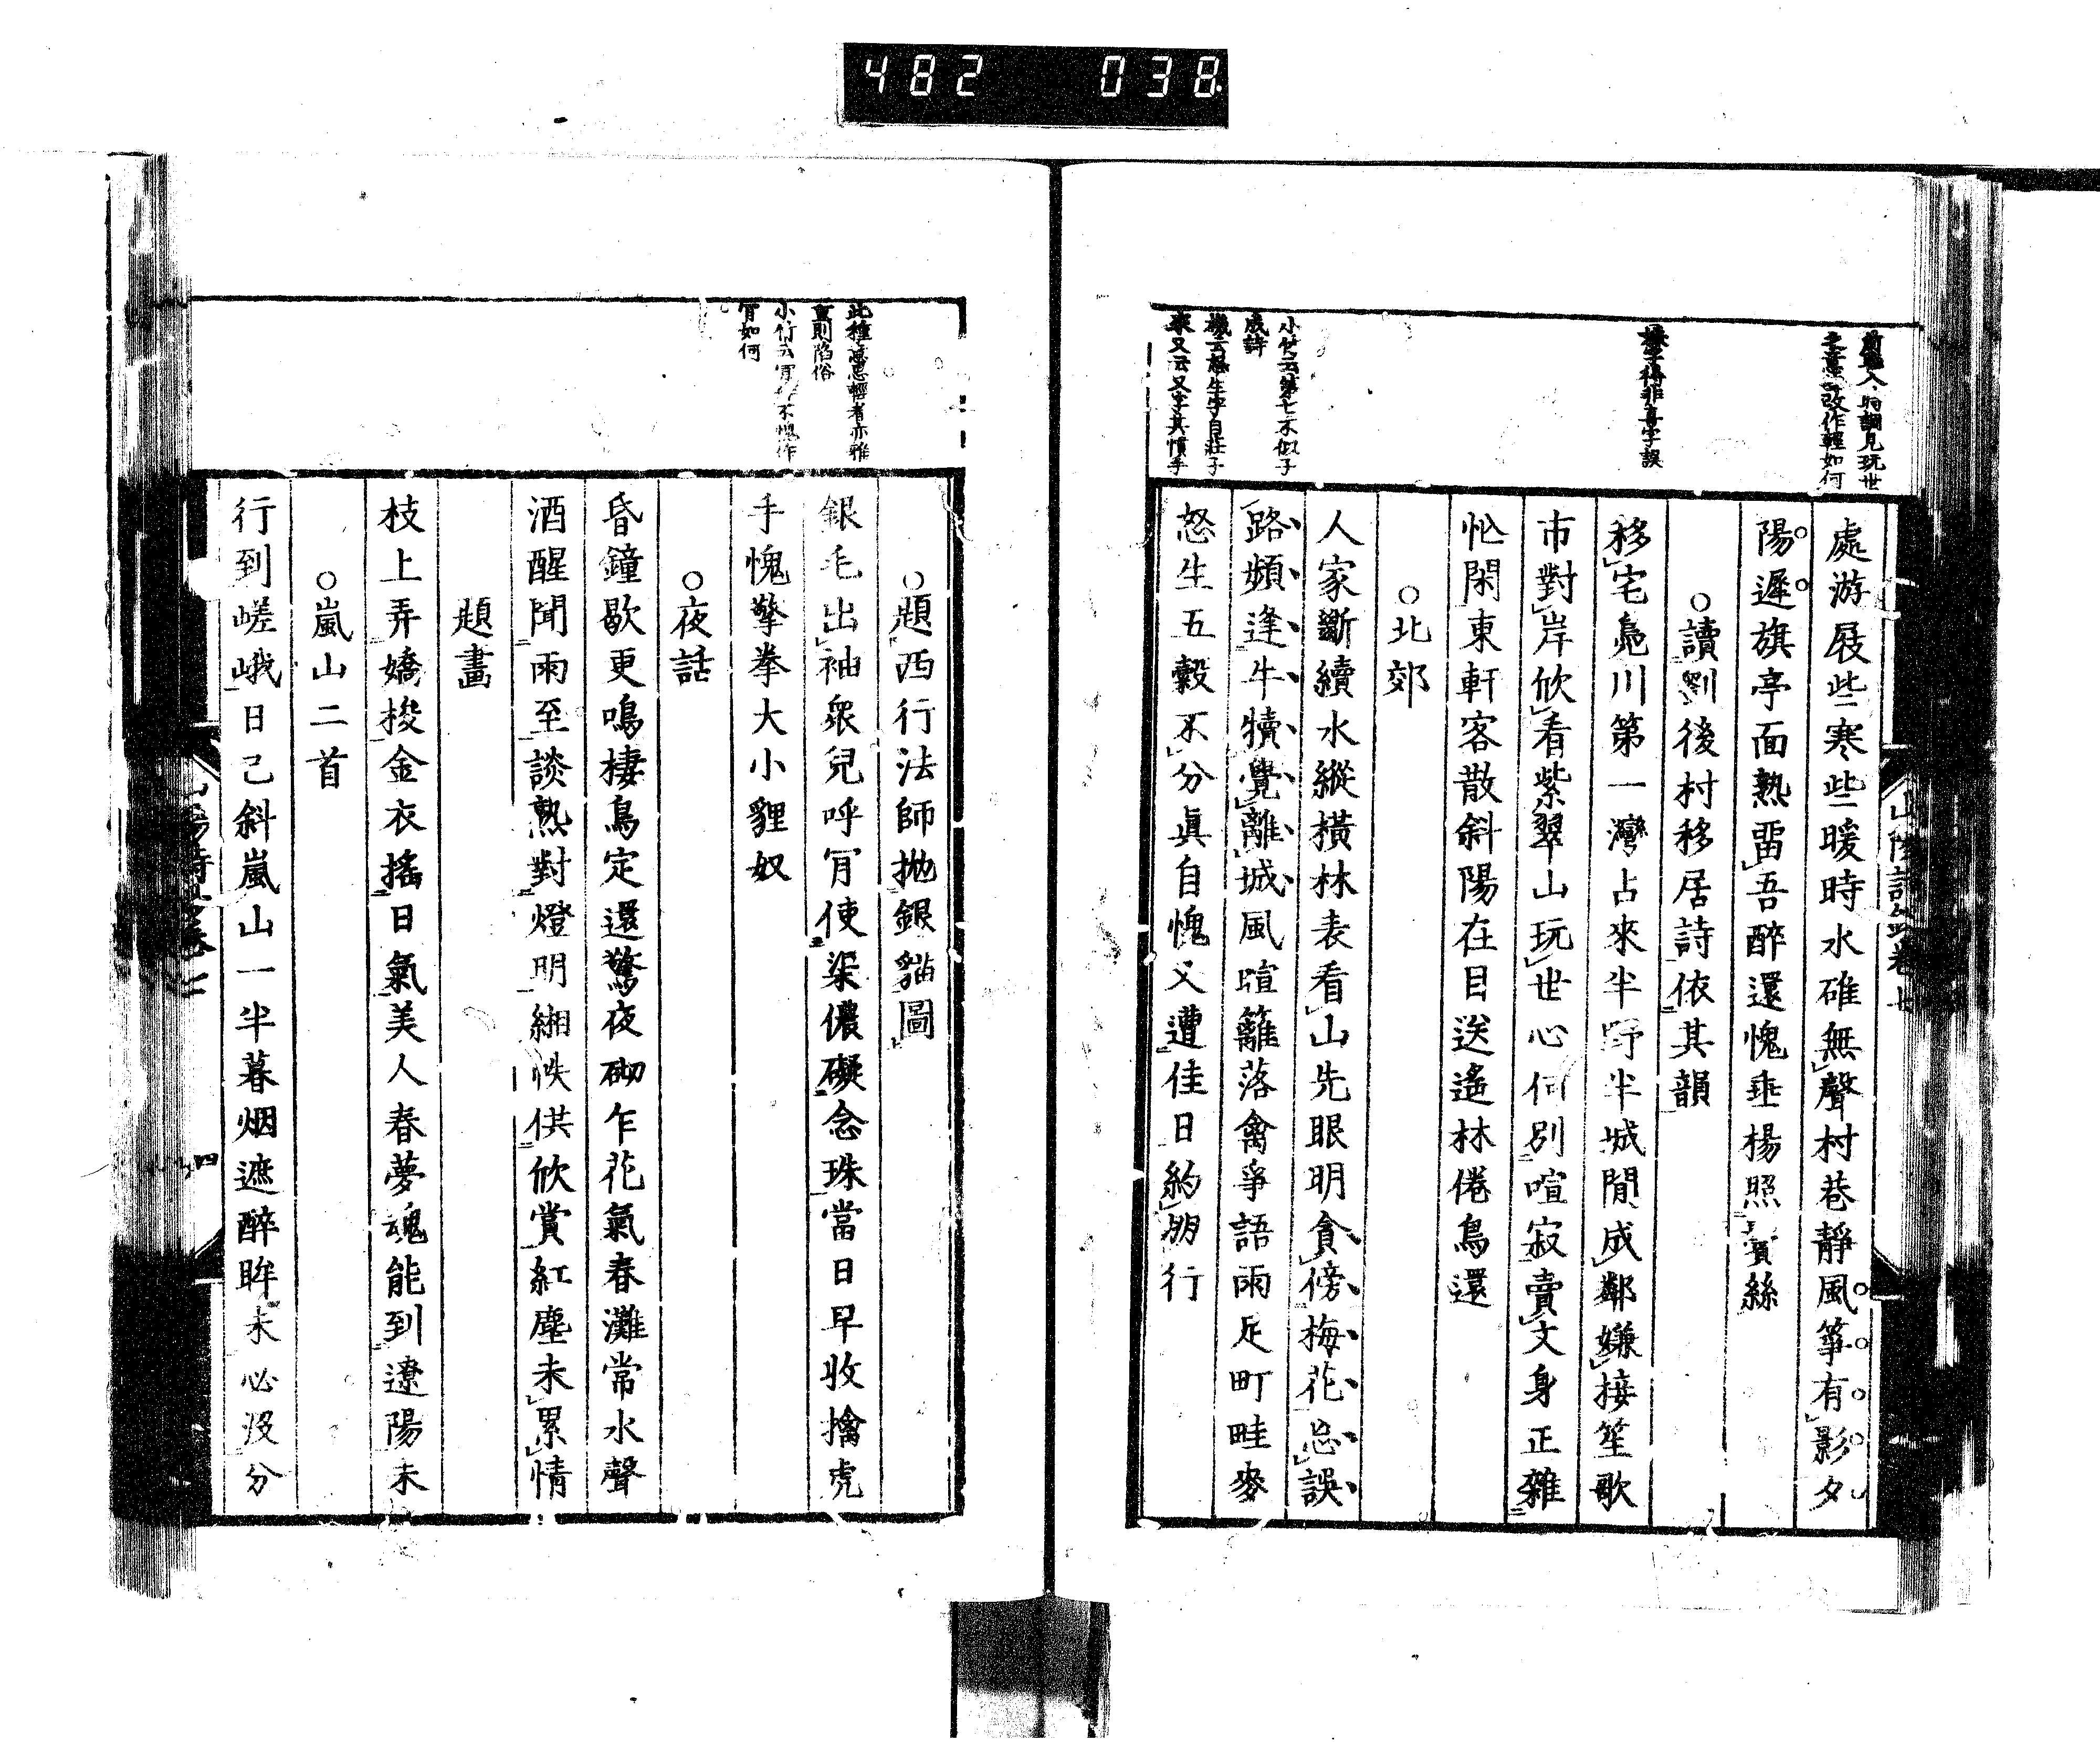 482 038
處游屐些寒些暖時水碓無聲村巷靜風箏有影夕
陽遲旗亭面熟畱吾醉還愧垂楊照鬢絲
○讀劉後村移居詩依其韻
移宅鳧川第一灣占來半野半城閒成鄰嫌接笙歌
市對岸欣看紫翠山玩世心何別喧寂賣文身正雜
忙閑東軒客散斜陽在目送遙林倦鳥還
○北郊
人家斷續水縱橫林表看山先眼明貪傍梅花忘誤
路頻逢牛犢覺離城風暄籬落禽爭語雨足町畦麥
怒生五穀不分真自愧又遭佳日約朋行
之意改作輕如何
小竹云第七不似子
成詩
機云怒生字自莊子
來又云又字其慣手
○題西行法師拋銀貓圖
銀毛出袖衆兒呼肎使渠儂礙念珠當日早收擒虎
手愧擎拳大小貍奴
○夜話
昏鐘歇更鳴棲鳥定還驚夜砌乍花氣春灘常水聲
酒醒聞雨至談熟對燈明緗帙供欣賞紅塵未累情
題畫
枝上弄嬌梭金衣搖日氣美人春夢魂能到遼陽未
○嵐山二首
行到嵯峨日已斜嵐山一半暮烟遮醉眸未必沒分
此種意思輕者亦雅
重則陷俗
小竹云肎不愧作
肎如何
四